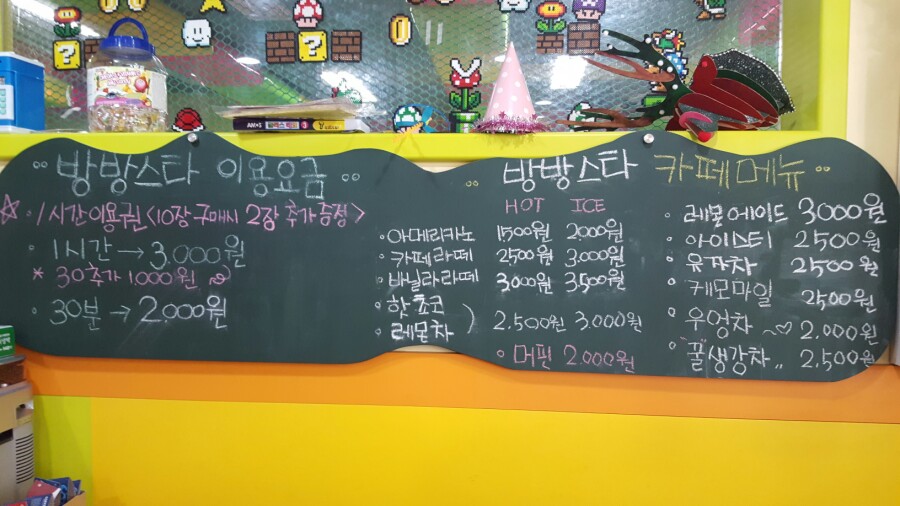 방방스타 이용요금
☆ 1시간이용권 <10장 구매시 2장 추가증정>
• 1시간 → 3.000원
* 30추가 1.000원
• 30분 → 2.000원
방방스타 카페메뉴
HOT ICE
• 아메리카노 1,500원 2.000원
• 카페라떼 2500원 3.000원
• 바닐라라떼 3000원 3500원
• 한쵸코
• 레몬차 ) 2.500원 3.000원
• 머핀 2.000원
• 레몬에이드 3000원
• 아이스티 2500원
• 유자차 2500원
• 케모마일 2500원
• 우엉차 ~♡ 2.000원
• "꿀"생강차,, 2,500원